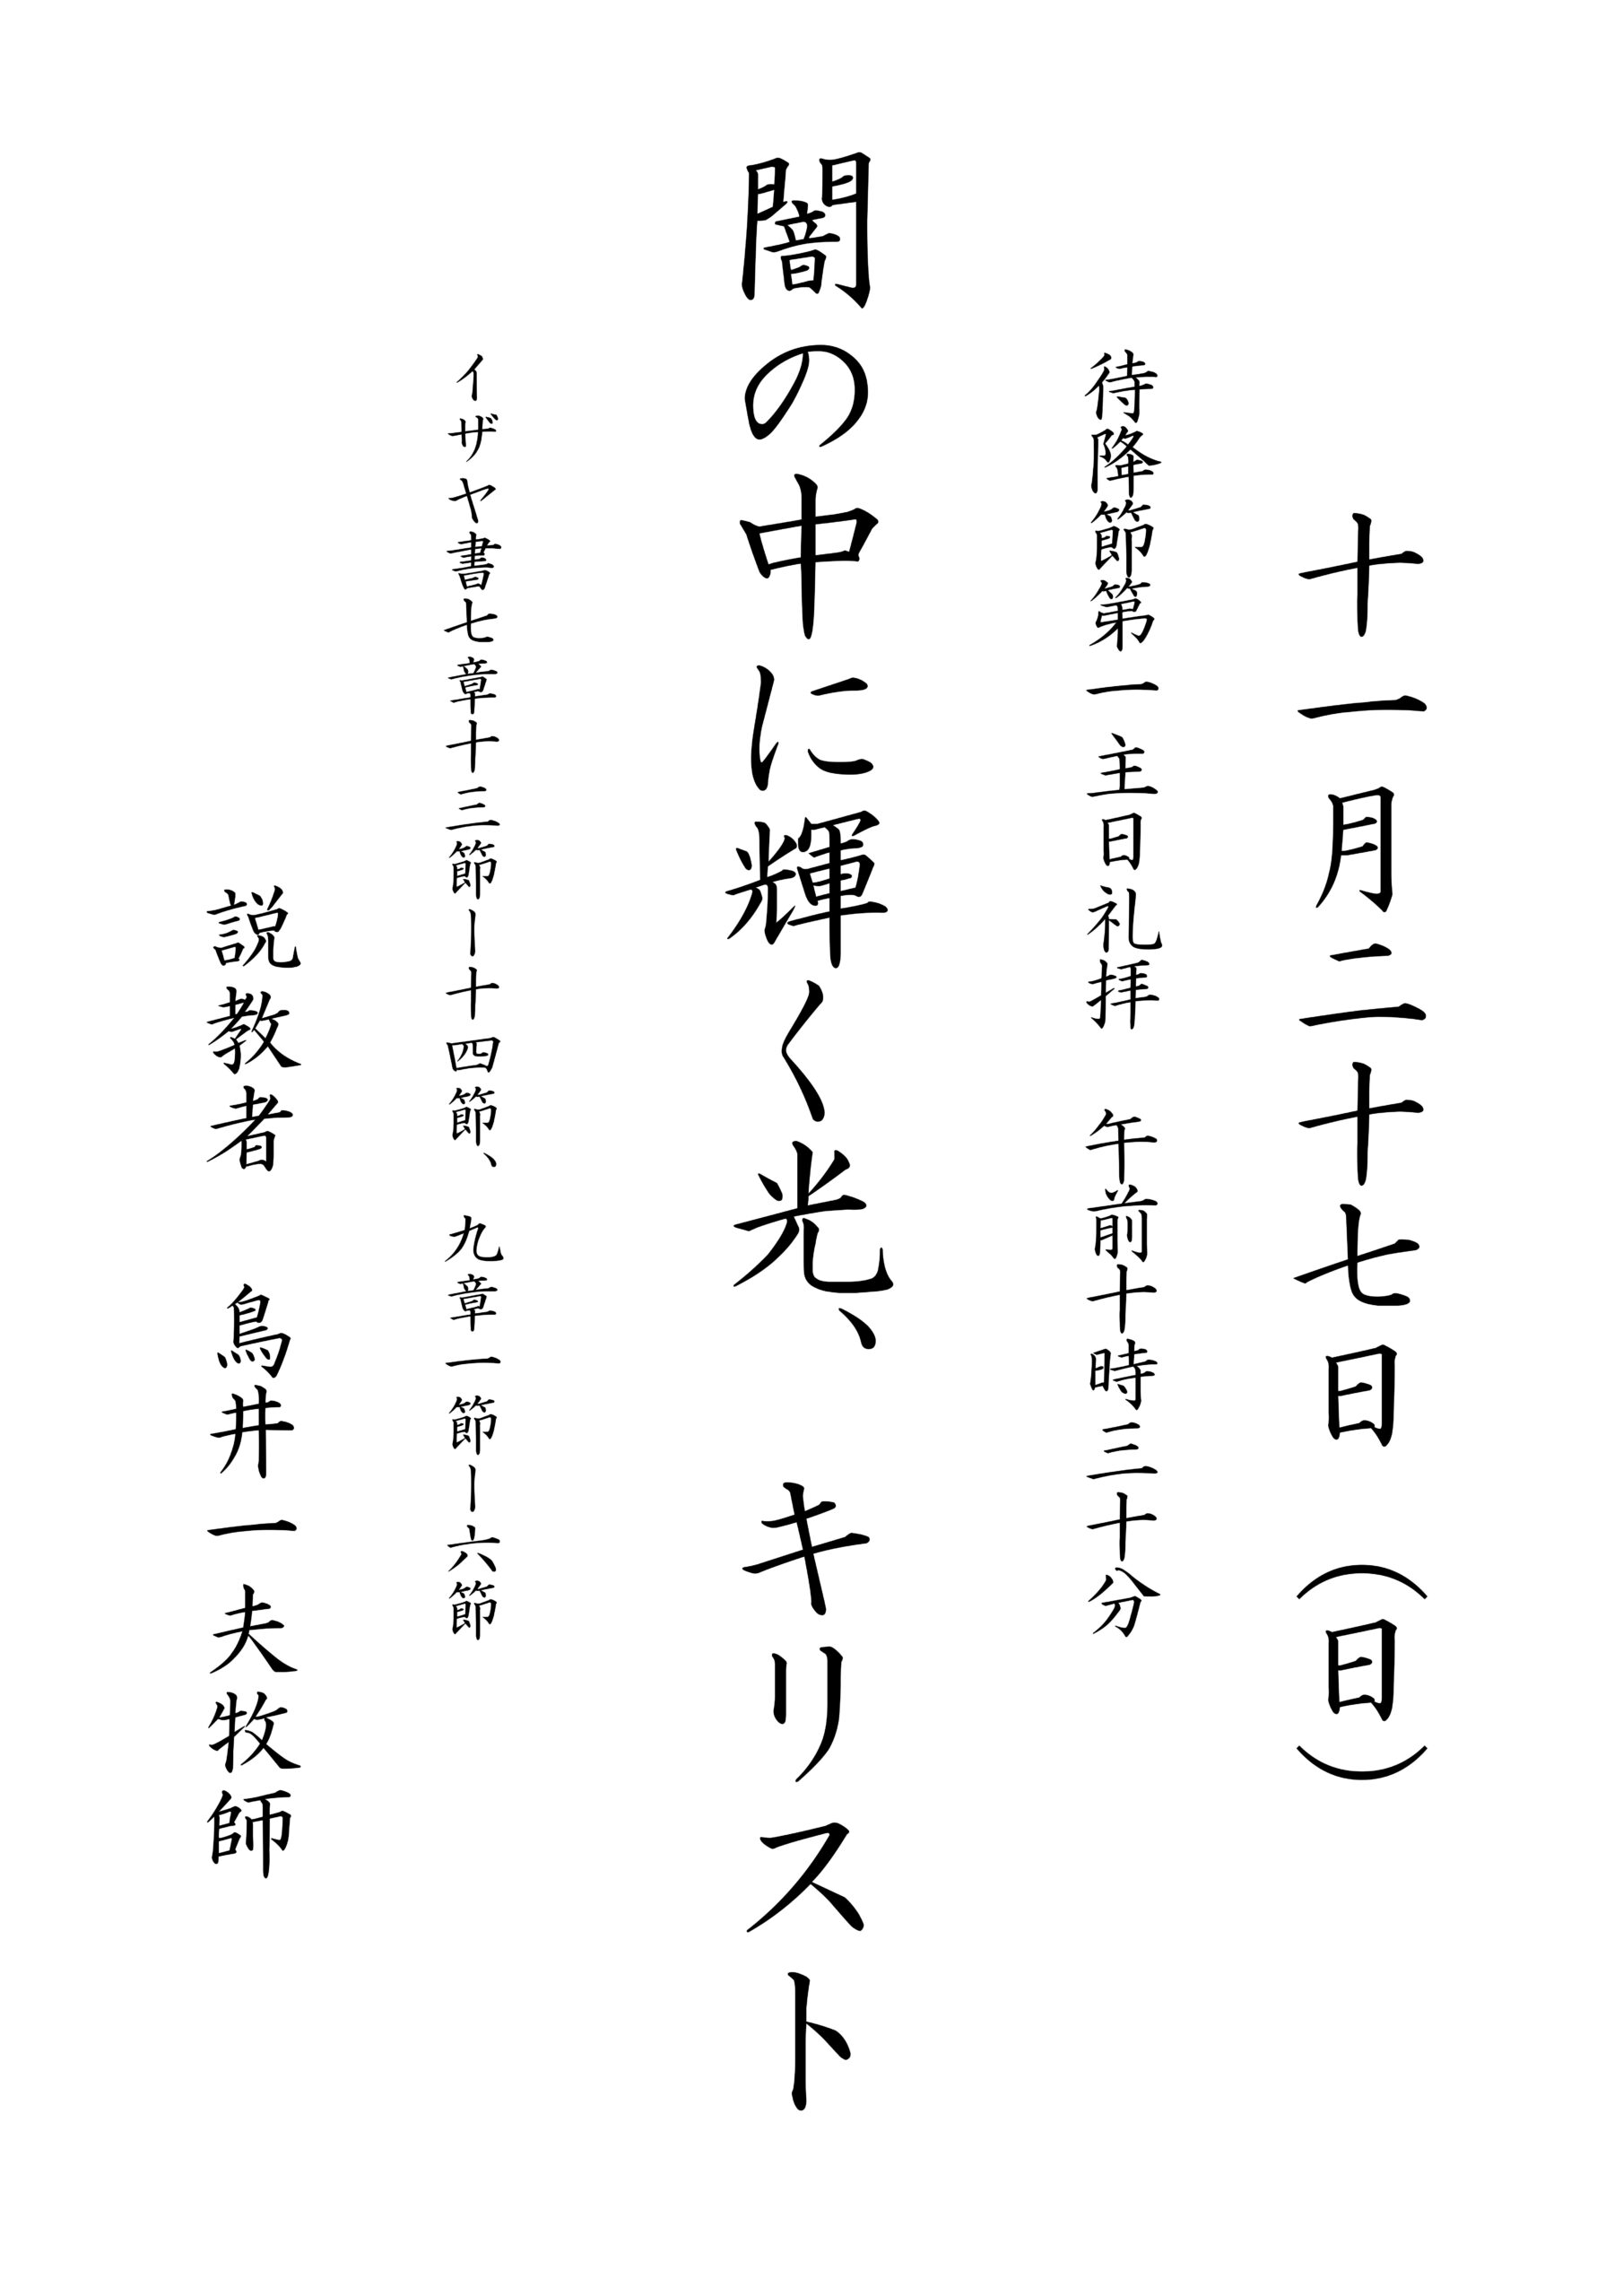 十一月二十七日（日）
待降節第一主日礼拝　午前十時三十分
闇の中に輝く光、キリスト
イザヤ書七章十三節―十四節、九章一節―六節
説教者　烏井一夫牧師